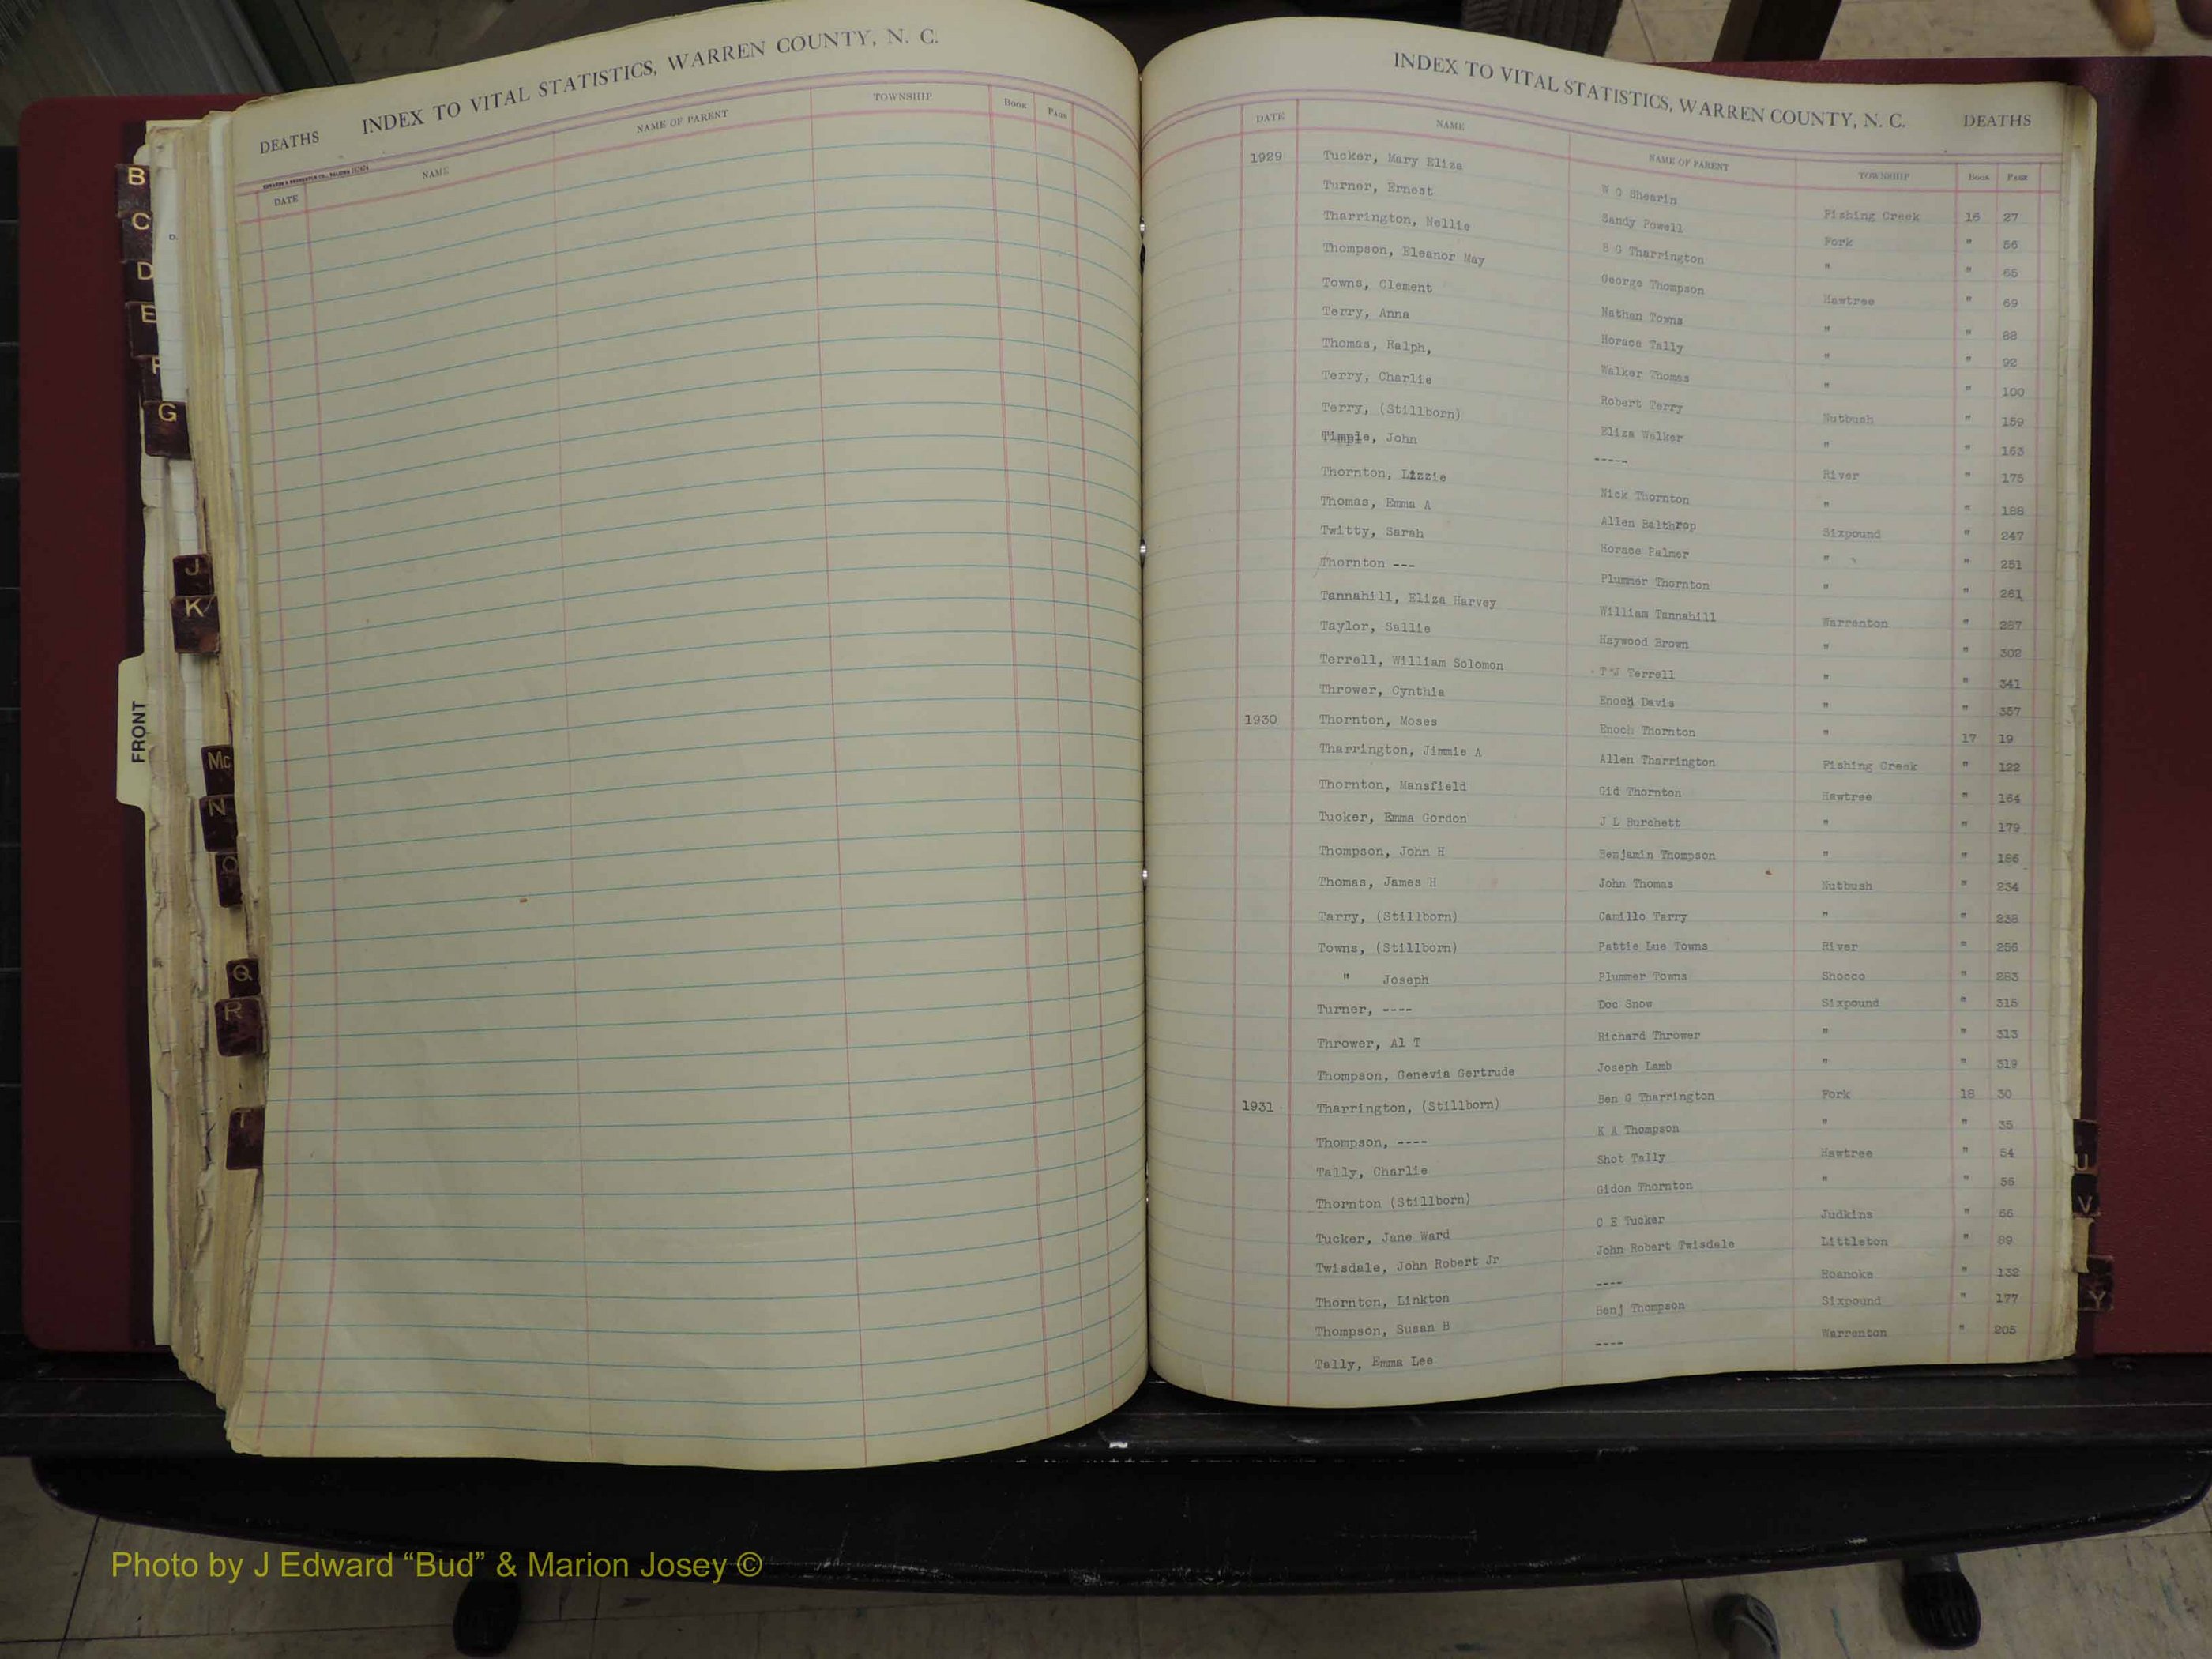 DEATHS INDEX TO VITAL STATISTICS, WARREN COUNTY, N. C.
DATE NAME NAME OF PARENT TOWNSHIP Book Page
INDEX TO VITAL STATISTICS, WARREN COUNTY, N. C. DEATHS
DATE NAME NAME OF PARENT TOWNSHIP Book Page
1929 Tucker, Mary Eliza W O Shearin Fishing Creek 16 27
Turner, Ernest Sandy Powell Fork " 56
Tharrington, Nellie B G Tharrington " " 65
Thompson, Eleanor May George Thompson Hawtree " 69
Towns, Clement Nathan Towns " " 88
Terry, Anna Horace Tally " " 92
Thomas, Ralph, Walker Thomas " " 100
Terry, Charlie Robert Terry Nutbush " 159
Terry, (Stillborn) Eliza Walker " " 163
Timple, John ----- River " 175
Thornton, Lizzie Nick Thornton " " 188
Thomas, Emma A Allen Balthrop Sixpound " 247
Twitty, Sarah Horace Palmer " " 251
Thornton --- Plummer Thornton " " 261
Tannahill, Eliza Harvey William Tannahill Warrenton " 287
Taylor, Sallie Haywood Brown " " 302
Terrell, William Solomon T J Terrell " " 341
Thrower, Cynthia Enoch Davis " " 357
1930 Thornton, Moses Enoch Thornton " 17 19
Tharrington, Jimmie A Allen Tharrington Fishing Creek " 122
Thornton, Mansfield Gid Thornton Hawtree " 164
Tucker, Emma Gordon J L Burchett " " 179
Thompson, John H Benjamin Thompson " " 186
Thomas, James H John Thomas Nutbush " 234
Tarry, (Stillborn) Camillo Tarry " " 238
Towns, (Stillborn) Pattie Lue Towns River " 256
" Joseph Plummer Towns Shocco " 283
Turner, ---- Doc Snow Sixpound " 315
Thrower, Al T Richard Thrower " " 313
Thompson, Genevia Gertrude Joseph Lamb " " 319
1931 Tharrington, (Stillborn) Ben G Tharrington Fork 18 30
Thompson, ---- K A Thompson " " 35
Tally, Charlie Shot Tally Hawtree " 54
Thornton (Stillborn) Gidon Thornton " " 56
Tucker, Jane Ward C E Tucker Judkins " 66
Twisdale, John Robert Jr John Robert Twisdale Littleton " 89
Thornton, Linkton ---- Roanoke " 132
Thompson, Susan B Benj Thompson Sixpound " 177
Tally, Emma Lee ---- Warrenton " 205
B
C
D
E
F
G
J
K
FRONT
Mc
N
O
Q
R
T
U
V
Y
Photo by J Edward “Bud” & Marion Josey ©